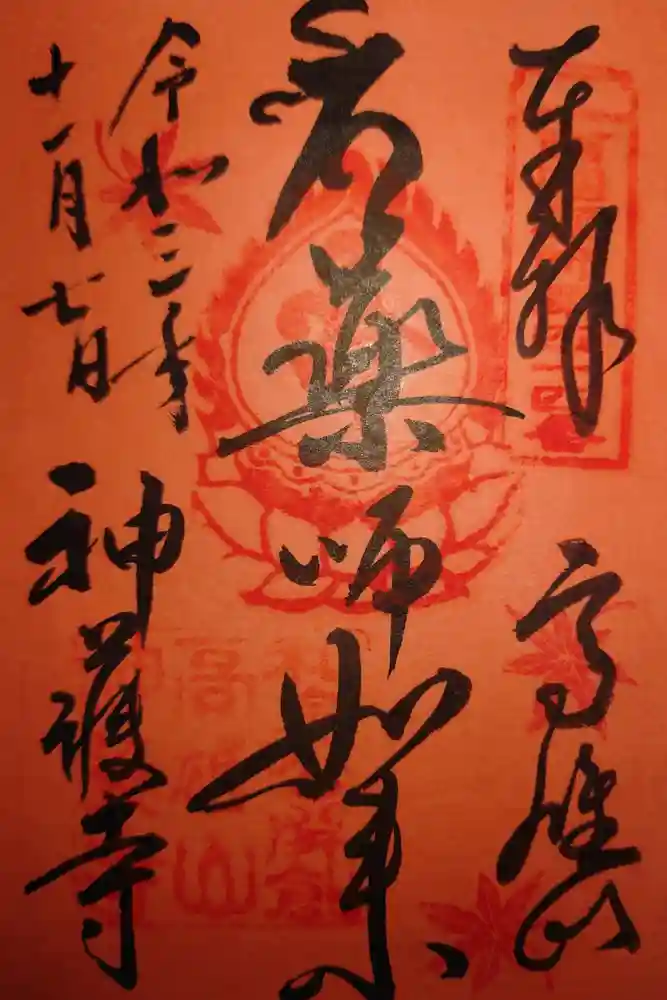 奉拝
高雄山
薬師如来
令和三年
十一月七日
神護寺